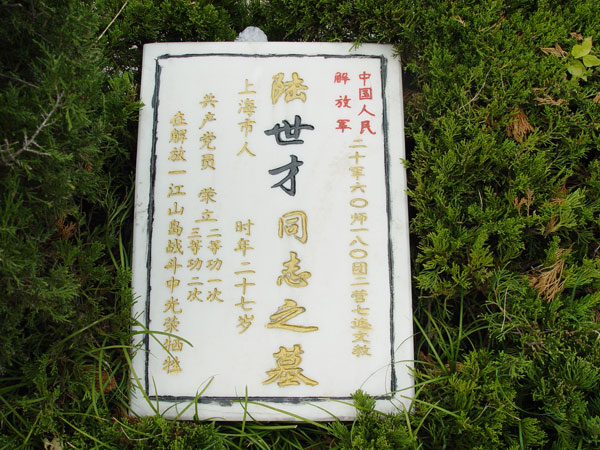 中国人民
解放军
二十军六〇师一八〇团二营七连文教
陆世才同志之墓
上海市人 时年二十七岁
共产党员 荣立二等功一次
三等功二次
在解放一江山岛战斗中光荣牺牲